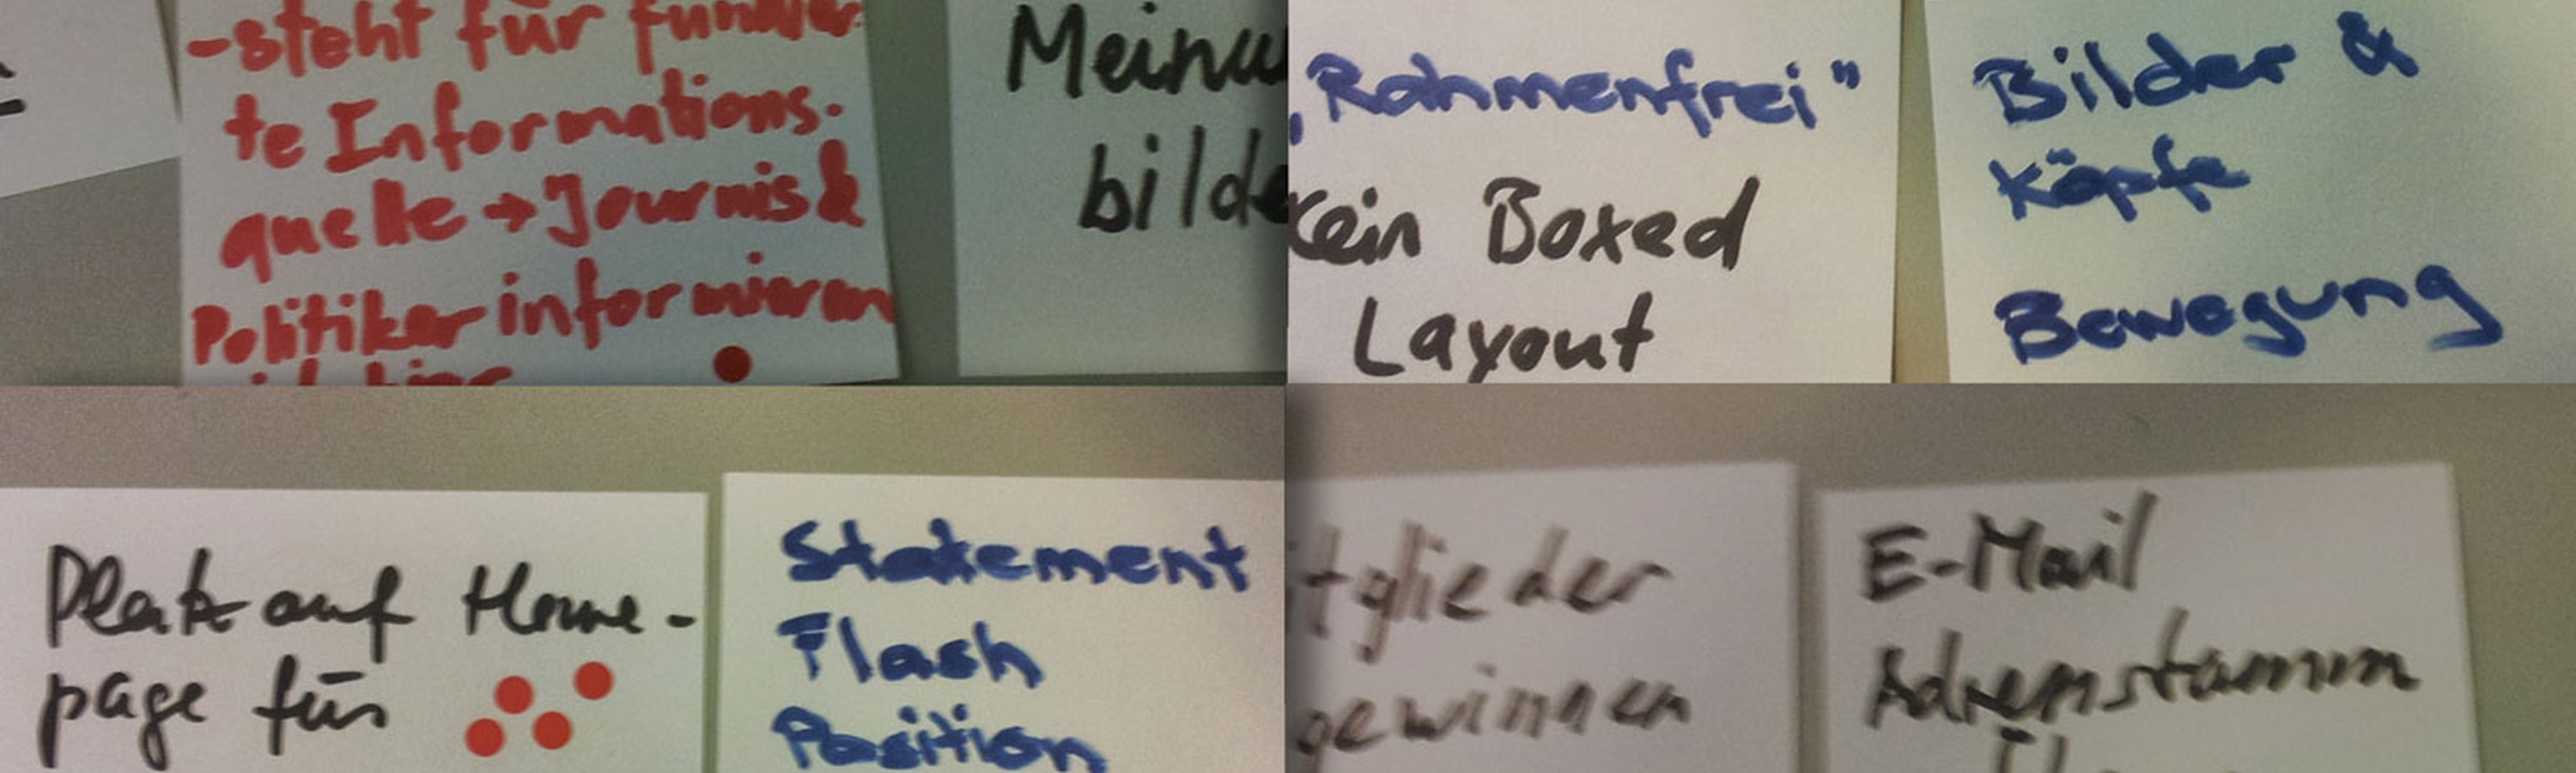 -steht für fundier
te Informations-
quelle → Journisk
Politiker informieren
Meinu
bilde
„Rahmenfrei"
Kein Boxed
Layout
Bilder &
Köpfe
Bewegung
Platz auf Home-
page für
Statement
Flash
Position
itglieder
gewinnen
E-Mail
Adressstamm